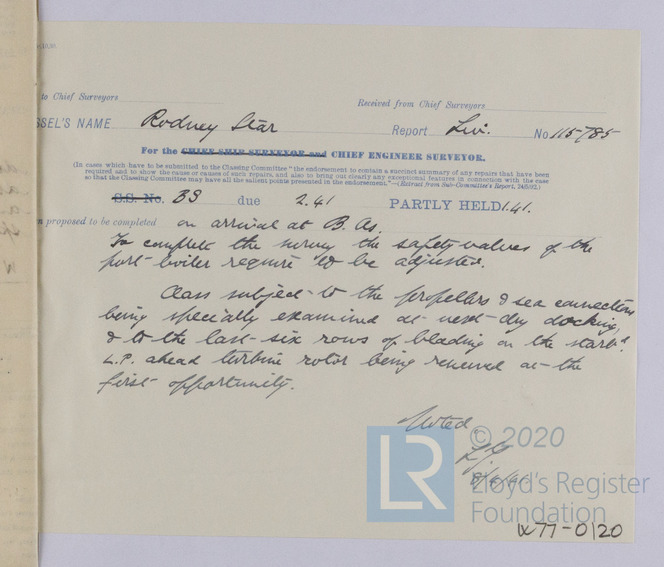 to Chief Surveyors
Received from Chief Surveyors
SSEL'S NAME Rodney Star Report Liv. No 115785
For the CHIEF SHIP SURVEYOR and CHIEF ENGINEER SURVEYOR.
(In cases which have to be submitted to the Classing Committee "the endorsement to contain a succinct summary of any repairs that have been
required and to show the cause or causes of such repairs, and also to bring out clearly any exceptional features in connection with the case
so that the Classing Committee may have all the salient points presented in the endorsement."—(Extract from Sub-Committee's Report, 24/5/02.)
S.S. No. BS due 2.41 PARTLY HELD 1.41.
n proposed to be completed on arrival at B. As.
To complete the survey the safety valves of the
port boiler require to be adjusted.
Class subject to the propellers & sea connections
being specially examined at next dry docking,
& to the last six rows of blading on the starbd.
L.P. ahead turbine rotor being renewed at the
first opportunity.
Noted
8/4/41.
LR
© 2020
Lloyd's Register
Foundation
W77-0120